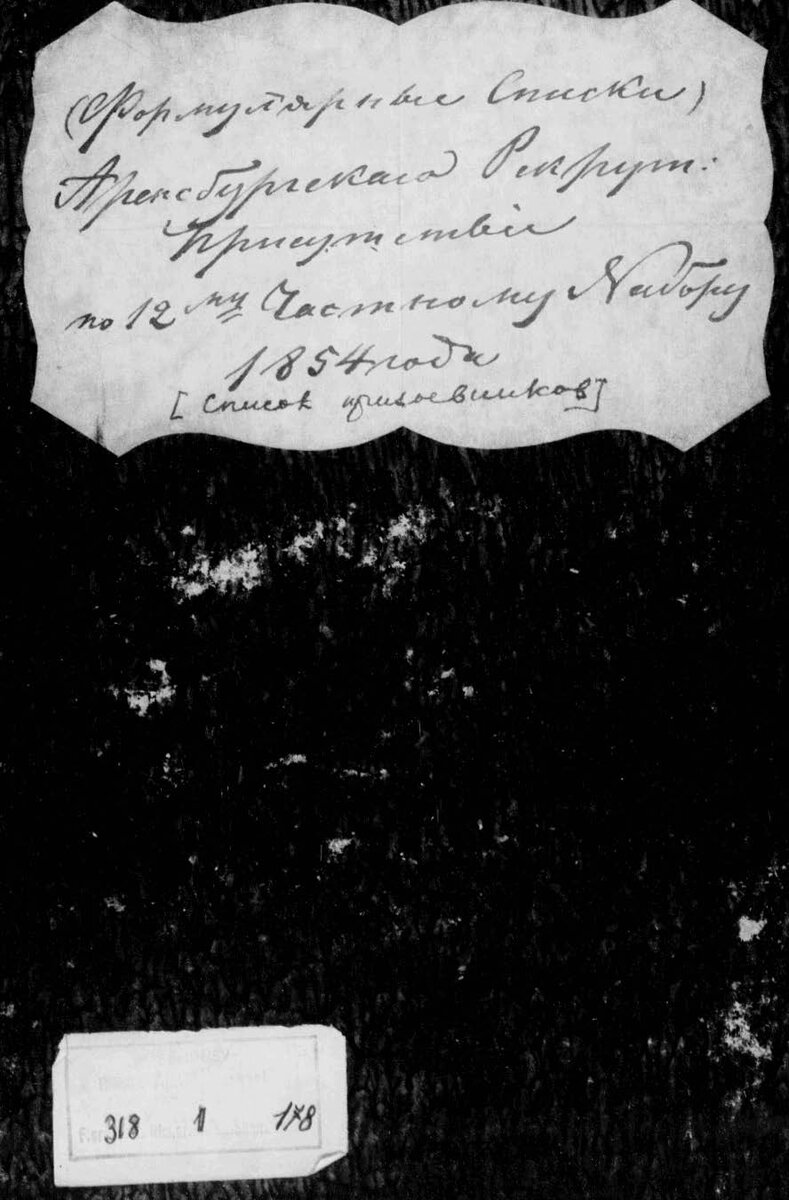 (Формулярные Списки)
Аренсбургскаго Рекрут:
присутствіе
по 12му Частному Набору
1854 года
[Список призывников]
318 1 178